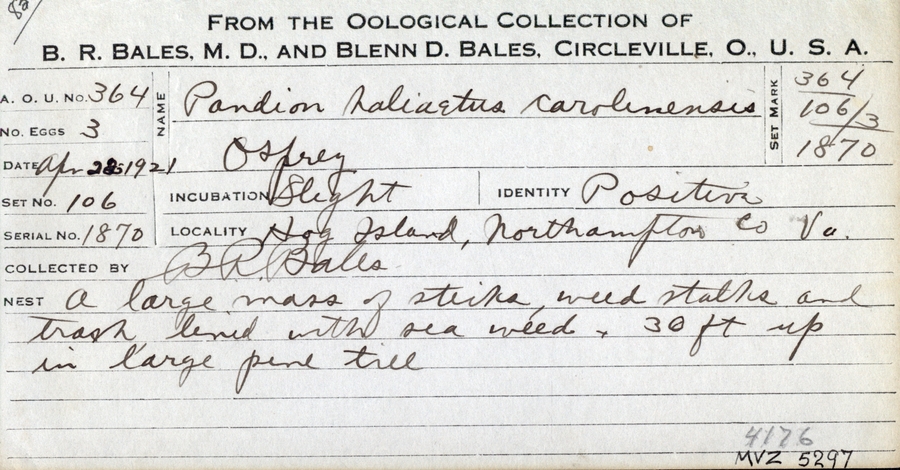 FROM THE OOLOGICAL COLLECTION OF
B. R. BALES, M. D., AND BLENN D. BALES, CIRCLEVILLE, O., U. S. A.
A. O. U. No. 364
NAME Pandion haliaetus carolinensis
Osprey
SET MARK 364
106/3
1870
No. EGGS 3
DATE Apr 1921
SET No. 106
INCUBATION Slight IDENTITY Positive
SERIAL No. 1870
LOCALITY Hog Island, Northampton Co Va.
COLLECTED BY B R Bales
NEST A large mass of sticks, weed stalks and
trash lined with sea weed. 30 ft up
in large pine tree
4176
MVZ 5297